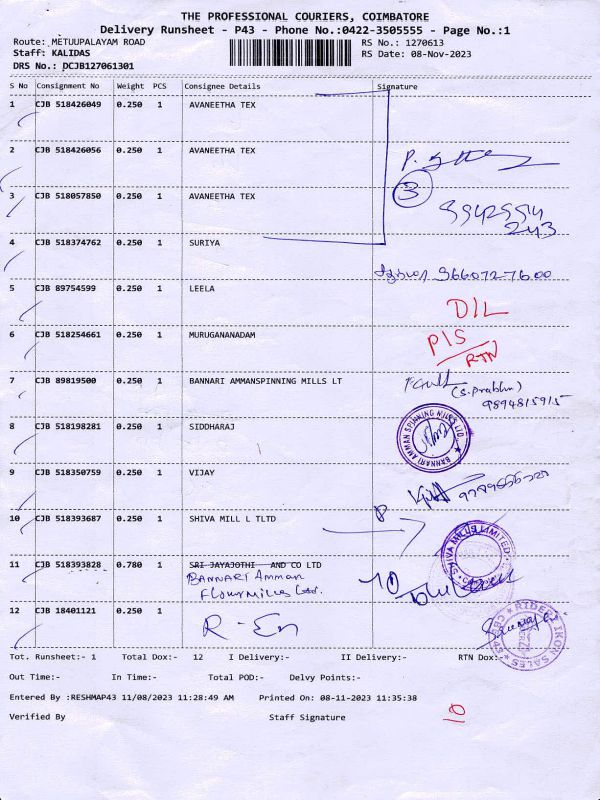 THE PROFESSIONAL COURIERS, COIMBATORE
Delivery Runsheet - P43 - Phone No.:0422-3505555 - Page No.:1
Route: METUUPALAYAM ROAD
RS No.: 1270613
Staff: KALIDAS
RS Date: 08-Nov-2023
DRS No.: DCJB127061301
S No Consignment No Weight PCS Consignee Details Signature
1 CJB 518426049 0.250 1 AVANEETHA TEX
2 CJB 518426056 0.250 1 AVANEETHA TEX
3
3 CJB 518057850 0.250 1 AVANEETHA TEX
4 CJB 518374762 0.250 1 SURIYA
5 CJB 89754599 0.250 1 LEELA
D/L
6 CJB 518254661 0.250 1 MURUGANANADAM
P/S
RTN
7 CJB 89819500 0.250 1 BANNARI AMMANSPINNING MILLS LT
(S. Prabhu)
9894815915
8 CJB 518198281 0.250 1 SIDDHARAJ
BANNARI AMMAN SPINNING MILLS LTD.
9 CJB 518350759 0.250 1 VIJAY
10 CJB 518393687 0.250 1 SHIVA MILL L TLTD
SHIVA MILLS LIMITED
11 CJB 518393828 0.780 1 SRI JAYAJOTHI AND CO LTD
BANNARI Amman
Flour Mills Ltd.
12 CJB 18401121 0.250 1
R-En
RIDERZ IKON SALES
CBE-43
Tot. Runsheet:- 1 Total Dox:- 12 I Delivery:- II Delivery:- RTN Dox:-
Out Time:- In Time:- Total POD:- Delvy Points:-
Entered By :RESHMAP43 11/08/2023 11:28:49 AM Printed On: 08-11-2023 11:35:38
Verified By Staff Signature
10